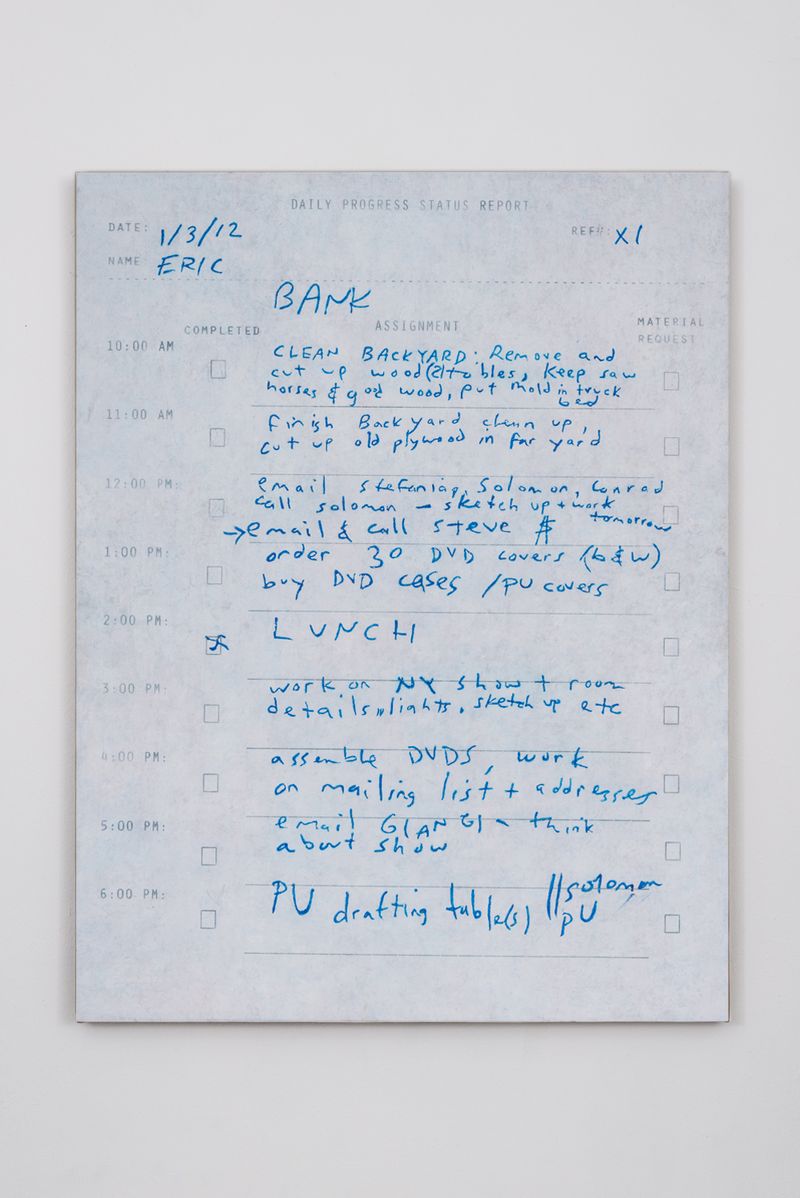 DAILY PROGRESS STATUS REPORT
DATE: 1/3/12
REF#: X1
NAME ERIC
BANK
COMPLETED ASSIGNMENT MATERIAL REQUEST
10:00 AM
CLEAN BACKYARD: Remove and
cut up wood (2) tables, keep saw
horses & good wood, put mold in truck
bed
11:00 AM
Finish Backyard clean up,
cut up old plywood in far yard
12:00 PM:
email Stefania, Solomon, Conrad
call solomon – sketch up + work
tomorrow
→ email & call steve $
1:00 PM:
order 30 DVD covers (b&w)
buy DVD cases / PU covers
2:00 PM:
LUNCH
3:00 PM:
work on NY show + room
details, lights, sketch up etc
4:00 PM:
assemble DVDS, work
on mailing list + addresses
5:00 PM:
email GIANGI – think
about show
6:00 PM:
PU drafting table(s) // solomon
PU